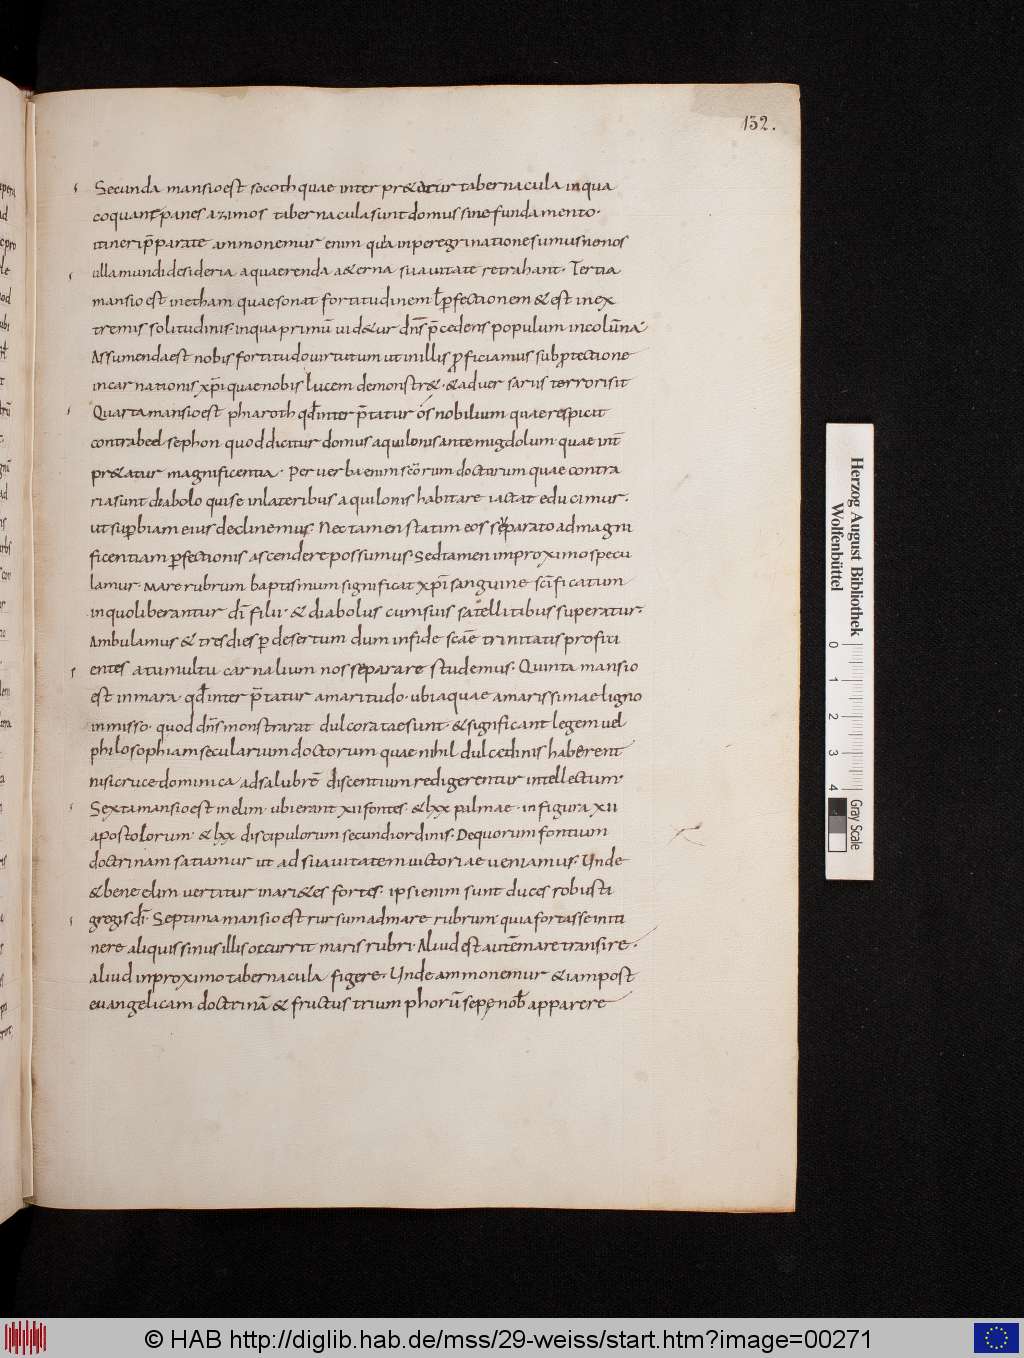 132.
Secunda mansio est socoth quae interpr&atur tabernacula in qua
coquant panes azimos tabernacula sunt domus sine fundamento·
itineri p̄parate ammonemur enim quia in peregrinatione sumus ne nos
ulla mundi desideria a quaerenda a&erna suauitate retrahant· Tertia
mansio est in etham quae sonat fortitudinem ł perfectionem & est in ex
tremis solitudinis· in qua primū uid&ur dn̄s p̄cedens populum in colūna·
Assumenda est nobis fortitudo uirtutum ut in illis proficiamus sub protectione
incarnationis xp̄i quae nobis lucem demonstr&· & aduersariis terrori sit
Quarta mansio est phiaroth qd̄ interp̄tatur ós nobilium quae respicit
contra beelsephon quod dicitur domus aquilonis ante migdolum· quae int̄
pr&atur magnificentia· Per uerba enim sc̄orum doctorum quae contra
ria sunt diabolo qui se in lateribus aquilonis habitare iactat educimur·
ut superbiam eius declinemus· Nec tamen statim eos separato ad magni
ficentiam perfectionis ascendere possumus· Sed tamen in proximo specu
lamur· mare rubrum baptismum significat xp̄i sanguine sc̄ificatum
in quo liberantur dī filii· & diabolus cum suis satellitibus superatur·
Ambulamus & tres dies per desertum dum in fide sc̄ae trinitatis profiti
entes a tumultu carnalium nos separare studemus· Quinta mansio
est in mara· qd̄ interp̄tatur amaritudo· ubi aquae amarissimae ligno
inmisso· quod dn̄s monstrarat dulcoratae sunt· & significant legem uel
philosophiam secularium doctorum quae nihil dulcedinis haberent
nisi cruce dominica ad salubrē discentium redigerentur intellectum·
Sexta mansio est in elim· ubi erant xii fontes· & lxx palmae· in figura xii
apostolorum· & lxx discipulorum secundi ordinis· De quorum fontium
doctrinam satiamur ut ad suauitatem uictoriae ueniamus· Unde
& bene elim uertitur in ari&es fortes· ipsi enim sunt duces robusti
gregis dī· Septima mansio est rursum ad mare rubrum· quia fortasse initi
nere aliquis sinus illis occurrit maris rubri· Aliud est autē mare transire·
aliud in proximo tabernacula figere· Unde ammonemur & iam post
euangelicam doctrinā & fructus triumphorū sepe nob̄ apparere
Herzog August Bibliothek
Wolfenbüttel
0 1 2 3 4
Gray Scale
© HAB http://diglib.hab.de/mss/29-weiss/start.htm?image=00271